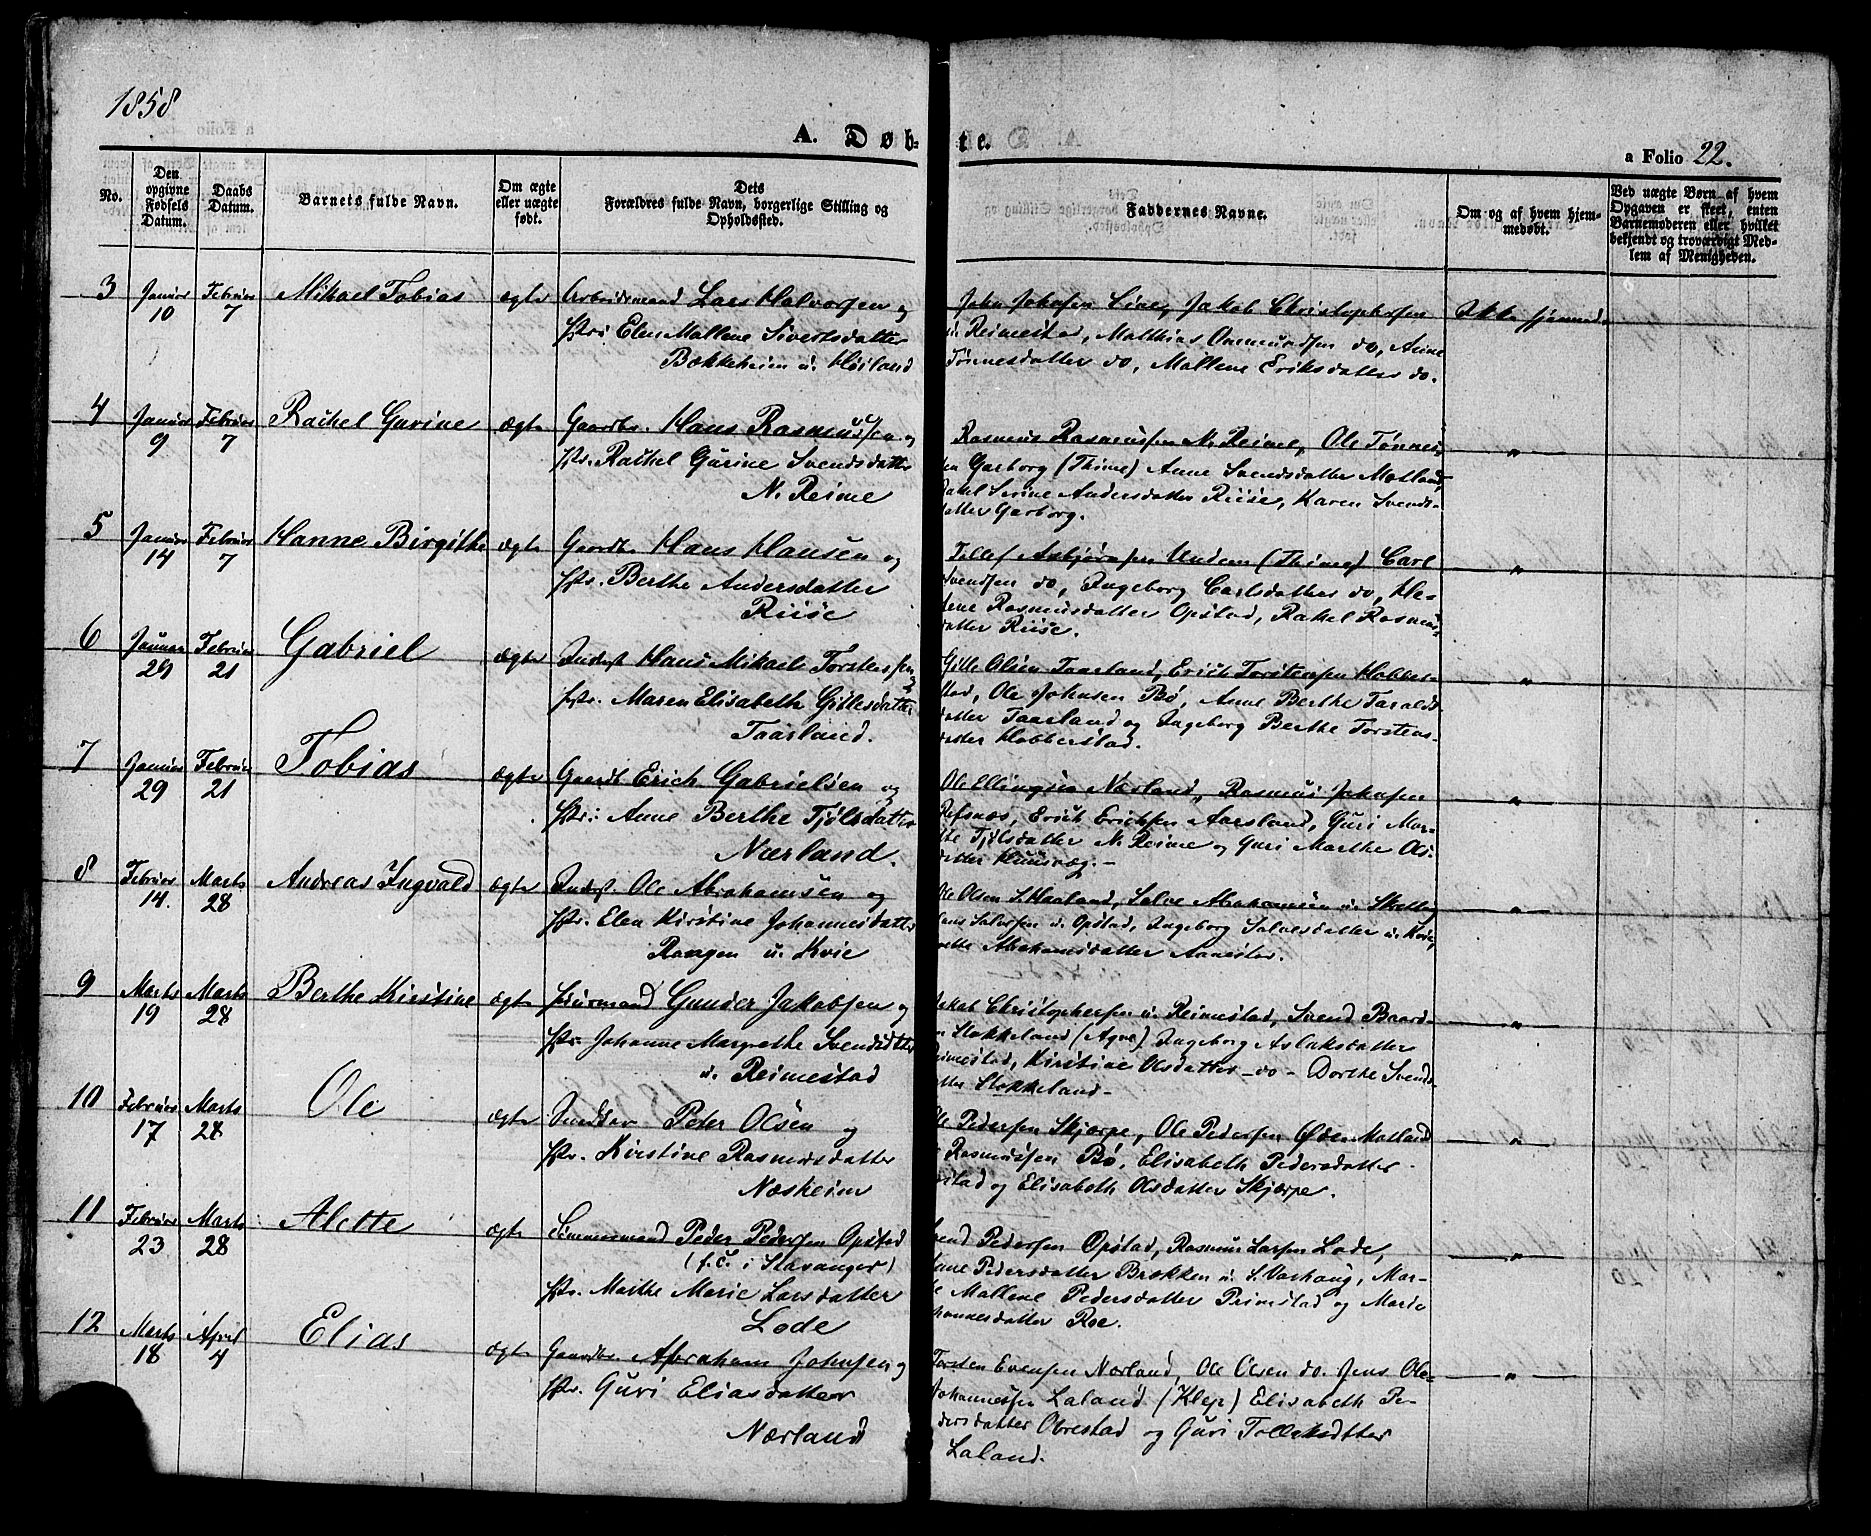 1858
A. Døbte.
a Folio 22.
No.
Den opgivne Fødsels Datum.
Daabs Datum.
Barnets fulde Navn.
Om ægte eller uægte født.
Dets Forældres fulde Navn, borgerlige Stilling og Opholdssted.
Faddernes Navne.
Om og af hvem hjemmedøbt.
Ved uægte Børn af hvem Opgaven er skeet, enten Barnemoderen eller hvilket bekjendt og troværdigt Medlem af Menigheden.
3 Januar 10 Februar 7 Mikael Tobias ægte Arbeidsmand Lars Halvorsen og
Hstr: Elen Mallene Sivertsdatter
Bokkeheim u. Høiland
John Johnsen Line, Jakob Christophersen
u. Reimestad, Matthias Ommundsen do, Anne
Tønnesdatter do, Mallene Eriksdatter do.
Ikke hjemmed.
4 Januar 9 Februar 7 Rachel Gurine ægte Gaardbr. Hans Rasmussen og
Hstr. Rachel Gurine Svendsdatter
N. Reime
Rasmus Rasmussen N. Reime, Ole Tønnes-
sen Garborg (Thime) Anne Svendsdatter Motland,
Rakel Serine Andersdatter Riise, Karen Svends-
datter Garborg.
"
5 Januar 14 Februar 7 Hanne Birgithe ægte Gaardb. Hans Hansen og
Hstr. Berthe Andersdatter
Riise
Tollef Asbjørnsen Undem (Thime) Carl
Svendsen do, Ingeborg Carlsdatter do, He-
lene Rasmusdatter Opstad, Rakel Rasmus-
datter Riise.
"
6 Januar 29 Februar 21 Gabriel ægte Inderst Hans Mikael Torstensen og
Hstr. Maren Elisabeth Gitlesdatter
Taarland.
Gitle Olsen Taarland, Erich Torstensen Hobber-
stad, Ole Johnsen Bø, Anne Berthe Taralds-
datter Taarland og Ingeborg Berthe Torstens-
datter Hobberstad.
"
7 Januar 29 Februar 21 Tobias ægte Gaardb. Erich Gabrielsen og
Hstr: Anne Berthe Tjølsdatter
Nærland.
Ole Ellingsen Nærland, Rasmus Johnsen
Refsnæs, Erich Erichsen Aarsland, Guri Mar-
the Tjølsdatter N. Reime og Guri Marthe Ols-
datter Huusvæg.-
"
8 Februar 14. Marts 28 Andreas Ingvald ægte Inderst Ole Abrahamsen og
Hstr. Elen Kirstine Johannesdatter
Rongen u. Kvie
Ole Olsen S. Haaland, Salve Abrahamsen u.
Hans Salvesen u. Opstad, Ingeborg Salvesdatter u.
Abrahamsdatter Aanestad.
"
9 Marts 19 Marts 28 Berthe Kirstine ægte Huusmand Gunder Jakobsen og
Hstr. Johanne Margrethe Svendsdtter
u. Reimestad
Jakob Christophersen u. Reimestad, Svend Baard-
sen Stokkeland (Agne) Ingeborg Aslaksdatter
Reimestad, Kirstine Olsdatter - do - Dorthe Svends-
datter Stokkeland-
"
10 Februar 17 Marts 28 Ole ægte Peter Olsen og
Hstr. Kirstine Rasmusdatter
Næsheim
Ole Pedersen Skjærpe, Ole Pedersen Øde Motland
Rasmussen Bø, Elisabeth Pedersdatter
og Elisabeth Olsdatter Skjærpe.
"
11 Februar 23 Marts 28 Alette ægte Tømmermand Peder Pedersen Opstad
(f. C. i Stavanger)
Hstr. Marthe Marie Larsdatter
Lode
Svend Pedersen Opstad, Rasmus Larsen Lode,
Anne Pedersdatter Brækken u. S. Varhaug, Mar-
the Mallene Pedersdatter Primestad og Marie
Johannesdatter Roe.
"
12 Marts 18 April 4 Elias ægte Gaardbr. Abraham Johnsen og
Hstr. Guri Eliasdatter
Nærland
Torsten Evensen Nærland, Ole Olsen do. Jens Ole
Johannessen Laland (Klep) Elisabeth Pe-
dersdatter Obrestad og Guri Tollefsdtter
Laland.
"